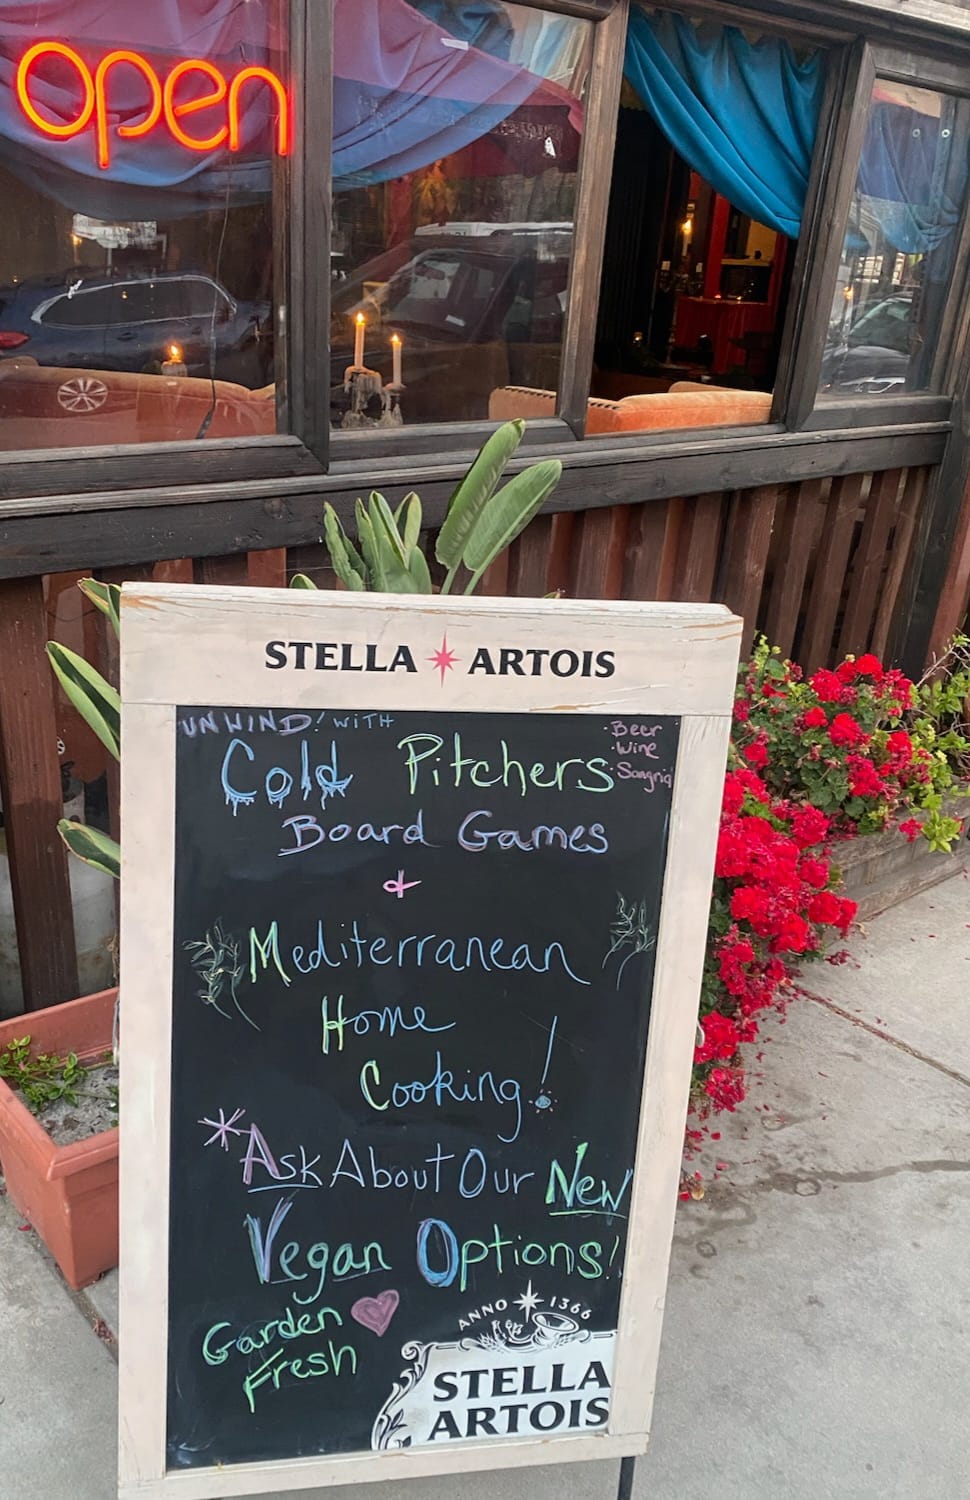 open
STELLA ARTOIS
UNWIND! WITH
Cold Pitchers
· Beer
· Wine
· Sangria
Board Games
&
Mediterranean
Home
Cooking!
*Ask About Our New
Vegan Options!
Garden
Fresh
ANNO 1366
STELLA
ARTOIS